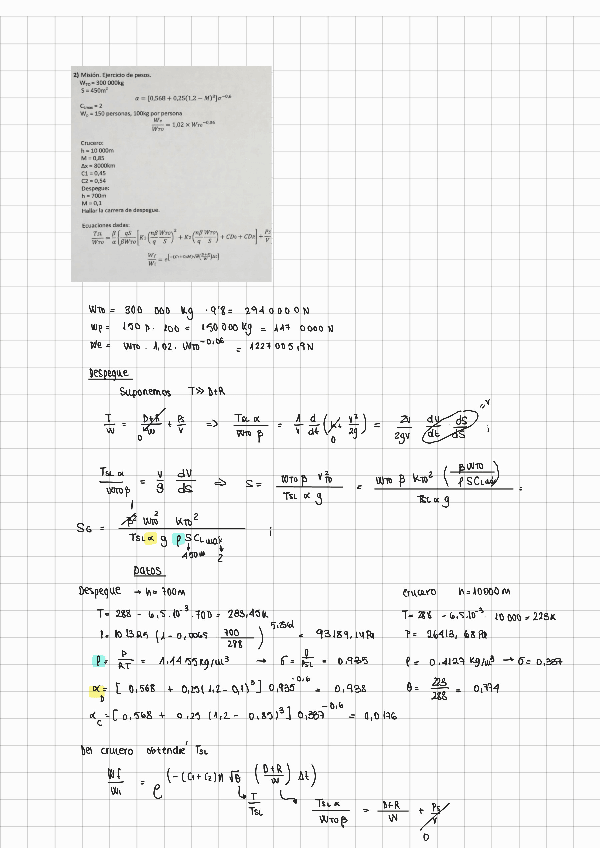 2) Misión. Ejercicio de pesos.
W_TO = 300 000kg
S = 450m²
α = [0,568 + 0,25(1,2 − M)³]σ^−0,6
C_Lmax = 2
W_p = 150 personas, 100kg por persona
W_e/W_TO = 1,02 × W_TO^−0,06
Crucero:
h = 10 000m
M = 0,85
Δx = 8000km
C1 = 0,45
C2 = 0,54
Despegue:
h = 700m
M = 0,1
Hallar la carrera de despegue.
Ecuaciones dadas:
T_SL/W_TO = β/α {qS/βW_TO [K₁ (nβ/q W_TO/S)² + K₂ (nβ/q W_TO/S) + CD₀ + CD_R] + P_S/V
W_f/W_i = e^
W_TO = 300 000 kg · 9'8 = 2940000N
Wp = 150 p. 100 = 150 000 kg = 147 0000 N
We = W_TO · 1,02 · W_TO^−0,06 = 1227005,9N
Despegue
Suponemos T >> D+R
T/W = D+R/W + Ps/V => T_SL α/W_TO β = 1/V d/dt (h + V²/2g) = 2V/2gV dV/dt dS/dS ;
0 0 "V
T_SL α/W_TO β = V/g dV/dS => S = W_TO β V²_TO/T_SL α g = W_TO β K_TO² (β W_TO/ρ S C_Lmax)/T_SL α g =
S_G = β² W_TO² K_TO²/T_SL α g ρ S C_Lmax ;
450m² 2
Datos
Despegue → h = 700m Crucero h = 10000m
T = 288 − 6,5·10⁻³ · 700 = 283,45K T = 288 − 6,5·10⁻³ 10 000 = 223K
P = 101325 (1 − 0,0065 700/288)^5,2561 = 93189,14Pa P = 26413,68 Pa
ρ = P/RT = 1,1455kg/m³ → σ = ρ/ρSL = 0,935 ρ = 0,4127 kg/m³ → σ = 0,337
α_D = [0,568 + 0,25(1,2 − 0,1)³] 0,935^−0,6 = 0,938 θ = 223/288 = 0,774
α_C = [0,568 + 0,25 (1,2 − 0,85)³] 0,337^−0,6 = 0,0176
Del crucero obtendré T_SL
Wf/Wi = e^(−(C1+C2)M) √θ (D+R/W) Δt)
T/T_SL T_SL α/W_TO β = D+R/W + Ps/V
0